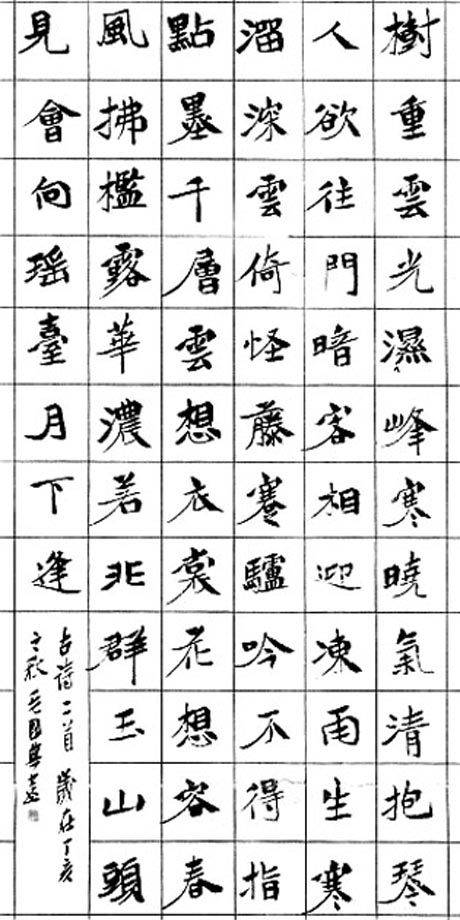 樹重雲光濕峰寒曉氣清抱琴
人欲往門暗客相迎凍雨生寒
溜深雲倚怪藤蹇驢吟不得指
點墨千層雲想衣裳花想容春
風拂檻露華濃若非群玉山頭
見會向瑶臺月下逢
古詩二首 歲在丁亥
之秋